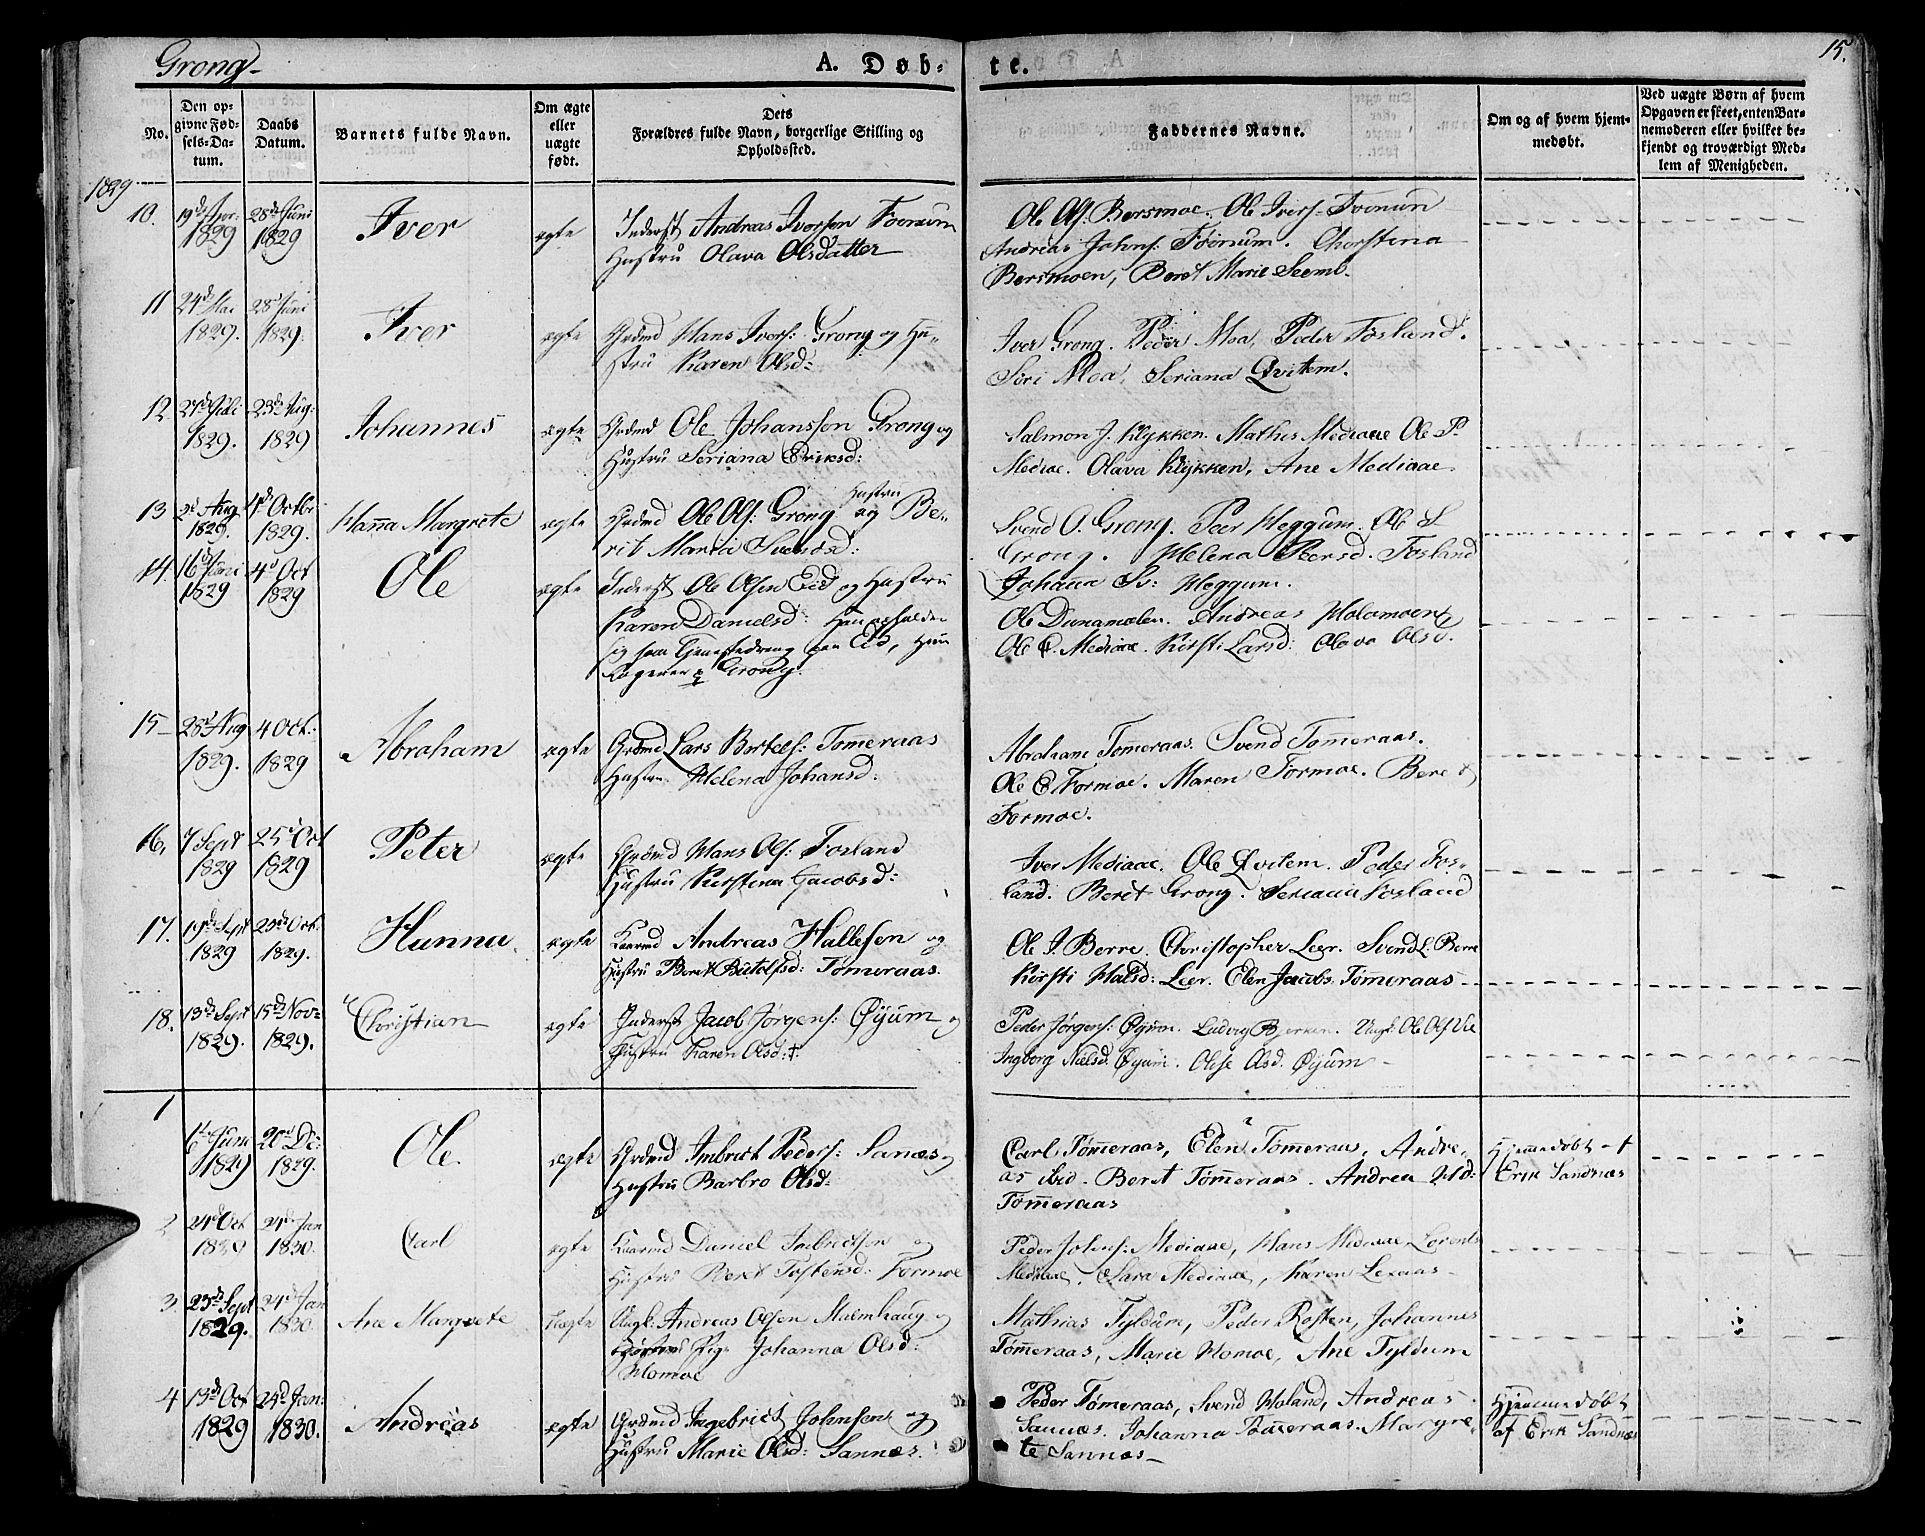 Grong
A. Døb-
te.
15.
No.
Den op-
givne Fød-
sels-Da-
tum.
Daabs
Datum.
Barnets fulde Navn.
Om ægte
eller
uægte
født.
Dets
Forældres fulde Navn, borgerlige Stilling og
Opholdssted.
Faddernes Navne.
Om og af hvem hjem-
medøbt.
Ved uægte Børn af hvem
Opgaven er skeet, enten Bar-
nemoderen eller hvilket be-
kjendt og troværdigt Med-
lem af Menigheden.
1829
10.
19de Apr.
1829
28de Juni
1829
Iver
ægte
Inderst Andreas Iversen
Hustru Olava Olsdatter
Ole Ols: Bersmoe. Ole Ivers:
Andreas Johns:
Bersmoen, Beret Marie Seemb.
11
24d Mai
1829.
28d Juni
1829.
Iver
ægte
Grdmd Hans Ivers: Grong og Hu-
stru Karen Olsd:
Iver Grong. Peder Moa, Peder Fosland.
Siri Moa, Seriana Qvitem.
12
1829.
23d Aug:
1829
Johannes
ægte
Grdmd Ole Johansson Grong og
Hustru Seriana Eriksd:
Salmon J. Klykken. Mathis Mediaae Ole P.
Mediae. Olava Klykken, Ane Mediaae.
13
2d Aug
1829.
4d Octbr
1829.
Hanna Margrete
ægte
Grdmd Ole Ols: Grong og Hustru Be-
rit Maria Svendsd:
Svend O. Grong. Peer Heggum. Ole S
Grong. Helena Peersd. Fosland
Johanna Heggum.
14.
16d Juni
1829
4d Oct
1829
Ole
ægte
Inderst Ole Olsen Eid og Hustru
Karen Danielsd: Han opholder
sig som Tjenestedreng paa Eid, Hun
Grong.
Ole Dunamoelen. Andreas Holamoen
Ole E. Mediaae. Kirsti Larsd: Olava Olsd.
15
28d Aug
1829.
4 Oct.
1829
Abraham
ægte
Grdmd Lars Bertels: Tømeraas
Hustru Helena Johansd:
Abraham Tømeraas. Svend Tømeraas.
Ole E Formoe. Maren Formoe. Beret
Formoe.
16.
7 Sept
1829
25d Oct
1829
Peter
ægte
Grdmd Hans Ols: Fosland
Hustru Kirstina Jacobsd:
Iver Mediaae. Ole Qvitem. Peder Fos-
land. Beret Grong. Seriana Fosland
17.
19de Sept
1829
1829.
Hanna.
ægte
Andreas Hallesen og
Hustru Beret Tømeraas.
Ole J. Berre. Christopher Leer. Svend L. Berre
Kirsti Halsd: Leer. Elen Jacobs. Tømeraas
18.
13de Sept
1829.
15de Nov:
1829.
Christian
ægte
Inderst Jacob Jørgens: Øyum og
Hustru Karen Olsd:
Peder Jørgens: Øyum. Ludvig Bjerken. Ungk. Ole Ols Vie
Ingborg Nielsd. Øyum. Olise Olsd. Øyum
1
Juni
1829
20d De:
1829.
Ole.
ægte
Grdmd Imbrict Peders: Sanæs og
Hustru Barbro Olsd:
Carl Tømeraas, Elen Tømeraas, Andre-
as ibid. Beret Tømeraas. Andrea
Tømeraas
Hjemmedøbt af
Erik Sandnæs
2
24d Oct
24d Jan
1830.
Carl
ægte
Daniel Imbrictsen og
Hustru Beret Tostensd: Formoe
Peder Johns: Mediaae, Hans Mediaae Lorents
Mediaae. Sara Mediaae, Karen Lexaas
3
23d Sept
1829.
24d Jan
1830.
Ane Margrete
Uægte
Ungk. Andreas Olsen Malmhaug og
Pig. Johanna Olsd:
Homoe
Mathias Fyldum, Peder Rosten, Johannes
Tømeraas, Marie Homoe, Ane Fyldum
4
13d Oct
1829
24d Jan:
1830.
Andreas
ægte
Grdmd Ingebrict Johnsen og
Hustru Marie Olsd: Sannæs.
Peder Tømeraas, Svend Holand, Andreas
Sannæs. Johanna Tømeraas. Margre-
te Sannæs
Hjemmedøbt
af Erik Sandnæs